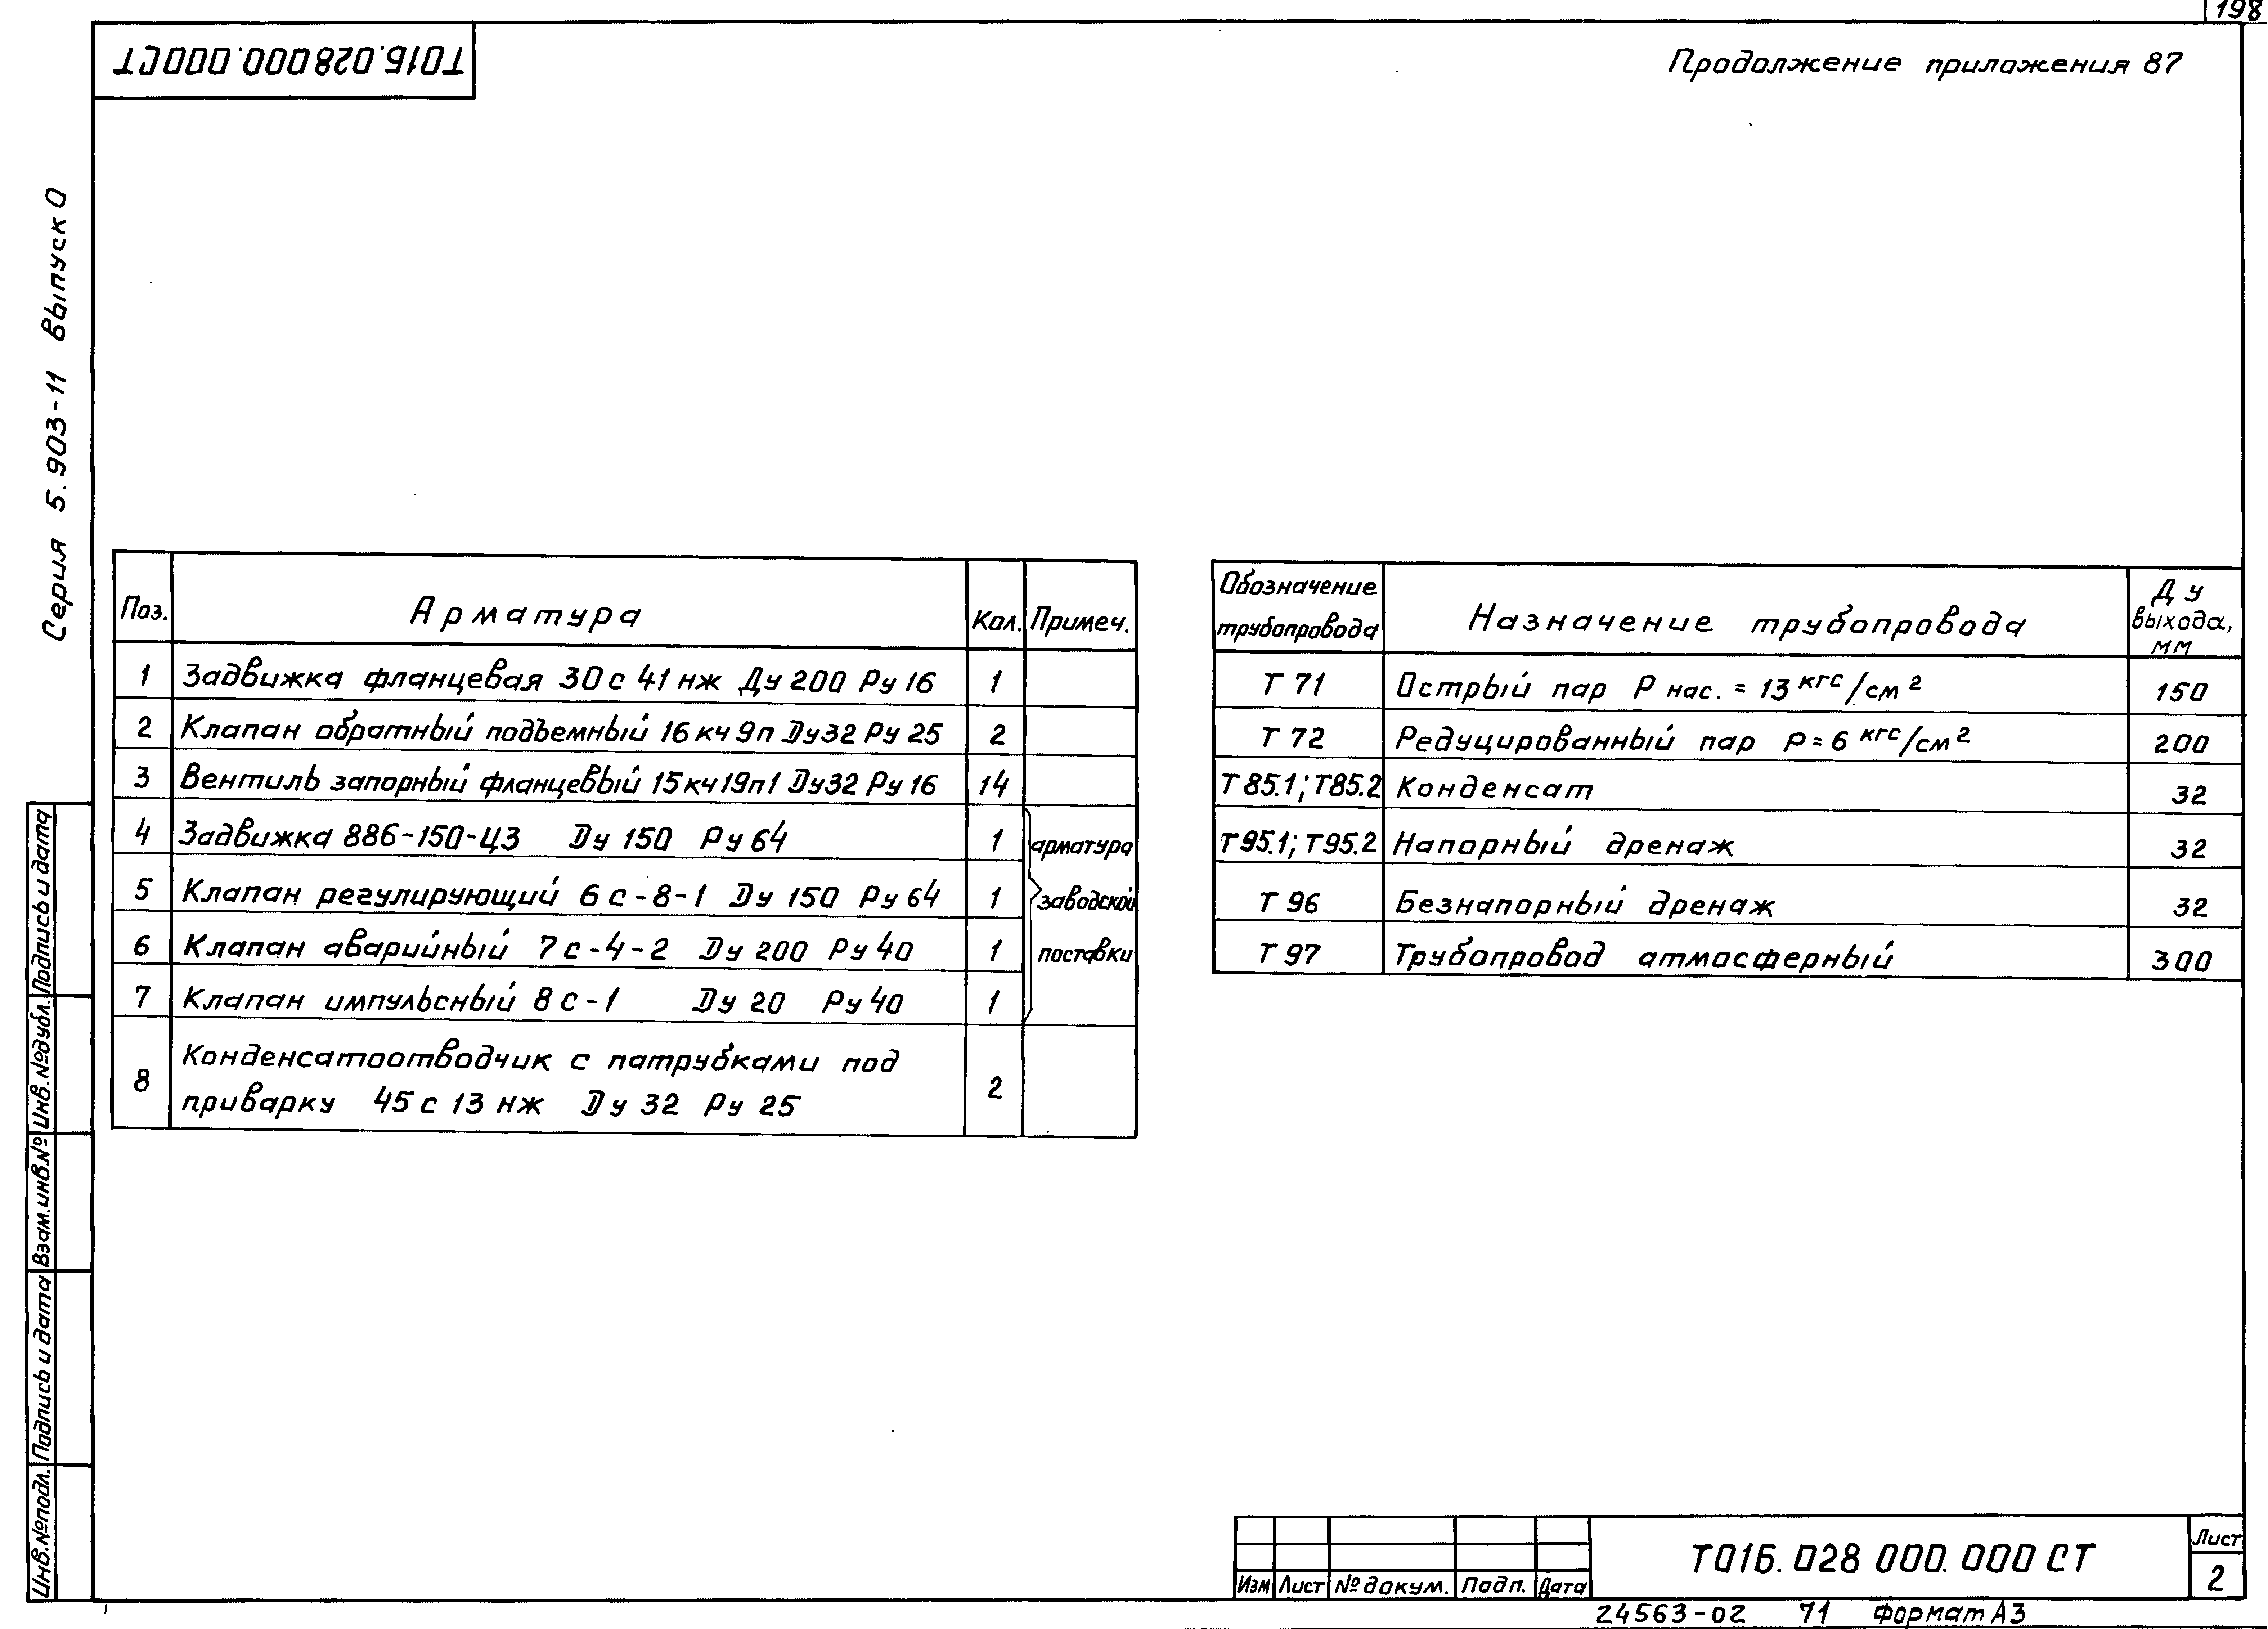 198
Т01Б.028000.000СТ
Продолжение приложения 87
Серия 5.903-11 Выпуск 0
Поз. Арматура Кол. Примеч.
1 Задвижка фланцевая 30с41нж Ду200 Ру16 1
2 Клапан обратный подъемный 16кч9п Ду32 Ру25 2
3 Вентиль запорный фланцевый 15кч19п1 Ду32 Ру16 14
4 Задвижка 886-150-ЦЗ Ду 150 Ру64 1 арматура
5 Клапан регулирующий 6с-8-1 Ду 150 Ру64 1 заводской
6 Клапан аварийный 7с-4-2 Ду 200 Ру40 1 поставки
7 Клапан импульсный 8с-1 Ду20 Ру40 1
8 Конденсатоотводчик с патрубками под
приварку 45с13нж Ду 32 Ру 25 2
Обозначение
трубопровода Назначение трубопровода Ду
выхода,
мм
Т71 Острый пар Р нас. = 13 кгс/см² 150
Т72 Редуцированный пар Р=6 кгс/см² 200
Т85.1; Т85.2 Конденсат 32
Т95.1; Т95.2 Напорный дренаж 32
Т96 Безнапорный дренаж 32
Т97 Трубопровод атмосферный 300
Подпись и дата
Инв.№дубл.
Взам.инв.№
Подпись и дата
Инв.№подл.
Изм Лист №докум. Подп. Дата
Т01Б.028 000.000 СТ
Лист
2
24563-02 71 Формат А3